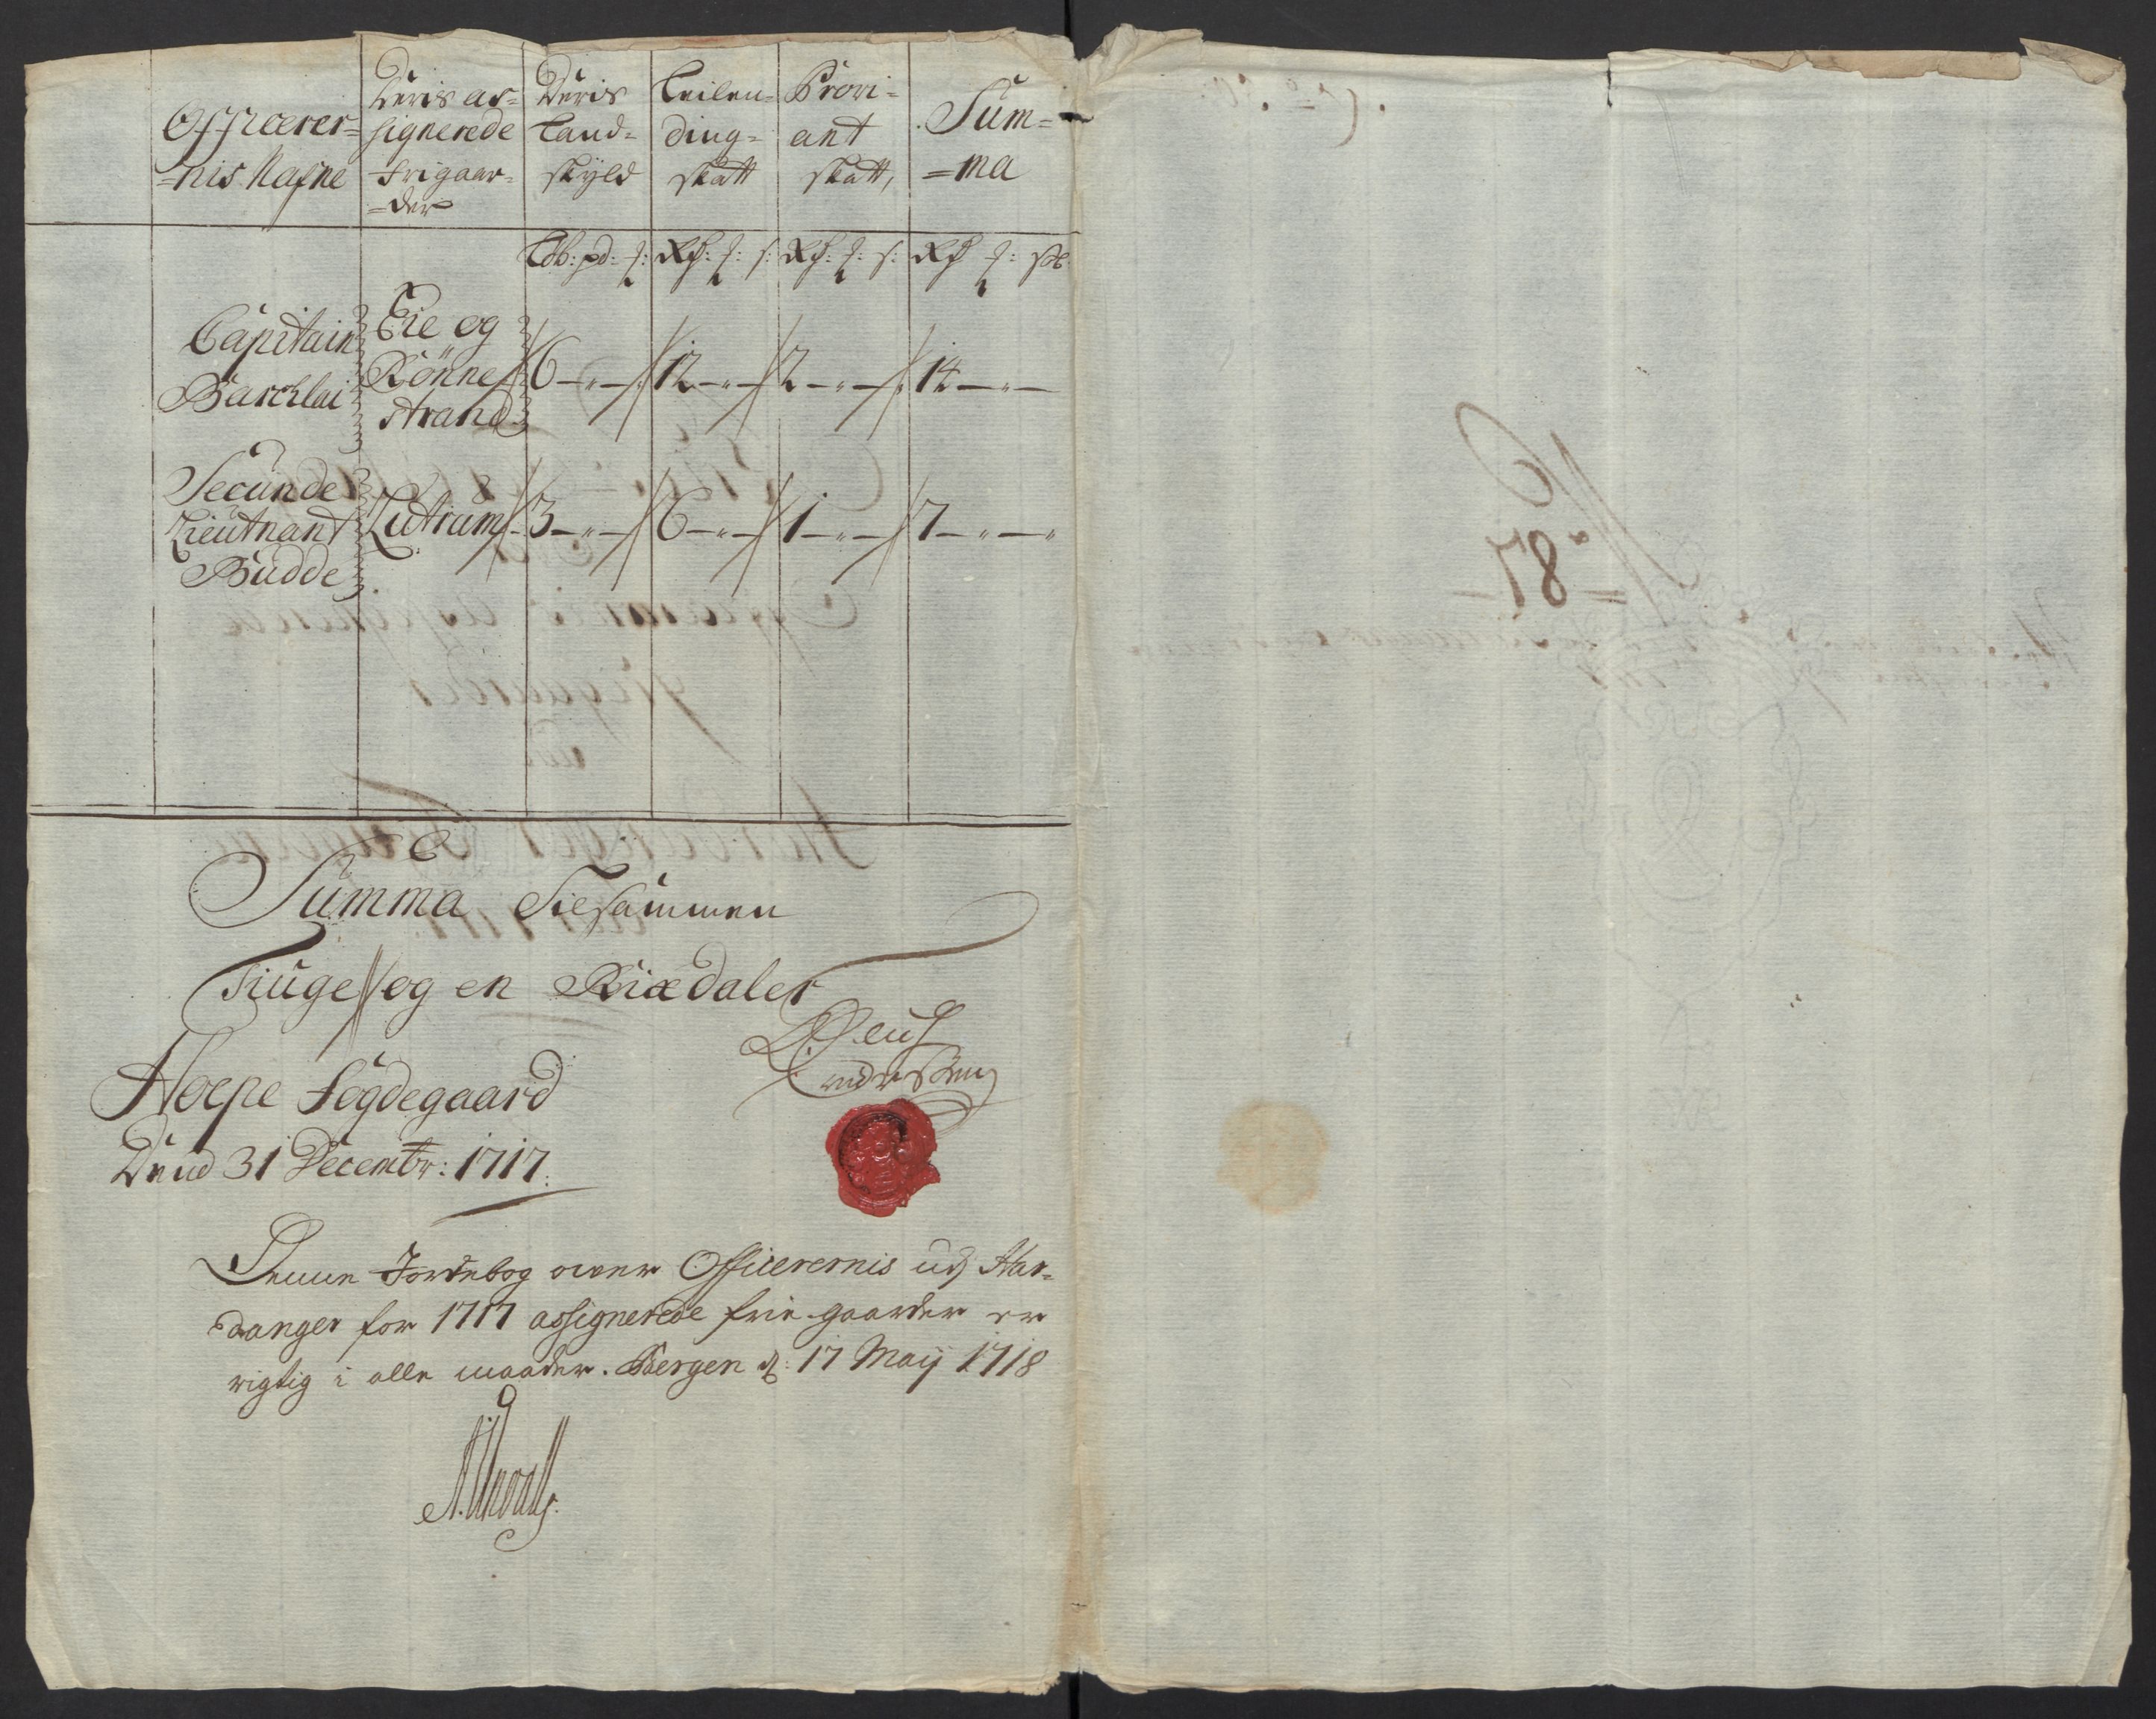 Officerer=
=nis Nafne
Deris as=
signerede
frigaar=
=der
Deris
Land=
skyld
Leilen=
ding=
skatt
Provi=
ant
skatt,
Sum=
=ma
Lb: pd: Rd: Rd: Rd
Capitain
Barchlai
Eie og
Rönne
strand
6 12 2 14
Secunde
Lieutnant
Budde
Lutrum
3 6 1 7
Summa Tilsammen
Tiuge og en Rixdaler
Hoepe fogdegaard
Dend 31 Decembr: 1717.
Denne Jordebog over Officerernis udj Har=
danger for 1717 assignerede frie gaarder er
rigtig i alle maader. Bergen d: 17 Maij 1718
No
=87=